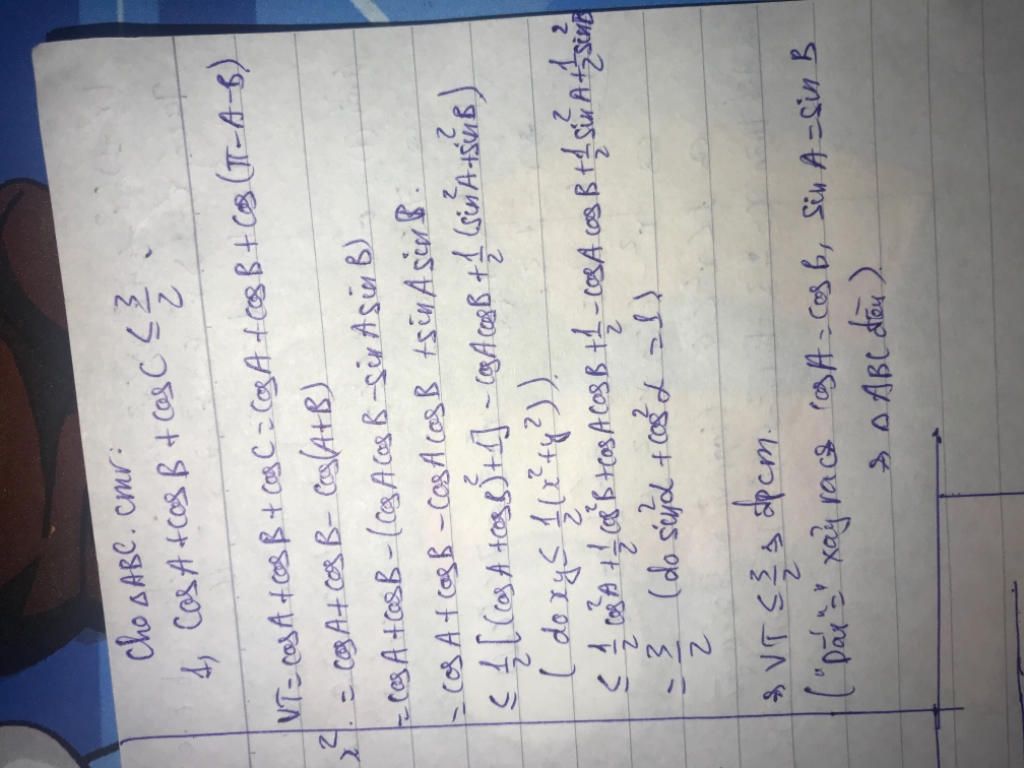 Cho △ABC. cmr:
1, cosA + cosB + cosC ≤ 3/2.
VT = cosA + cosB + cosC = cosA + cosB + cos(π - A - B)
x² . = cosA + cosB - cos(A+B)
= cosA + cosB - (cosAcosB - sinAsinB)
= cosA + cosB - cosAcosB + sinAsinB.
≤ 1/2[(cosA + cosB)² + 1] - cosAcosB + 1/2(sin²A + sin²B)
(do xy ≤ 1/2(x² + y²)).
≤ 1/2cos²A + 1/2cos²B + cosAcosB + 1/2 - cosAcosB + 1/2sin²A + 1/2sin²B
= 3/2 (do sin²α + cos²α = 1)
⇒ VT ≤ 3/2 ⇒ đpcm.
("Dấu "=" xảy ra cosA = cosB, sinA = sinB
⇒ △ABC đều)